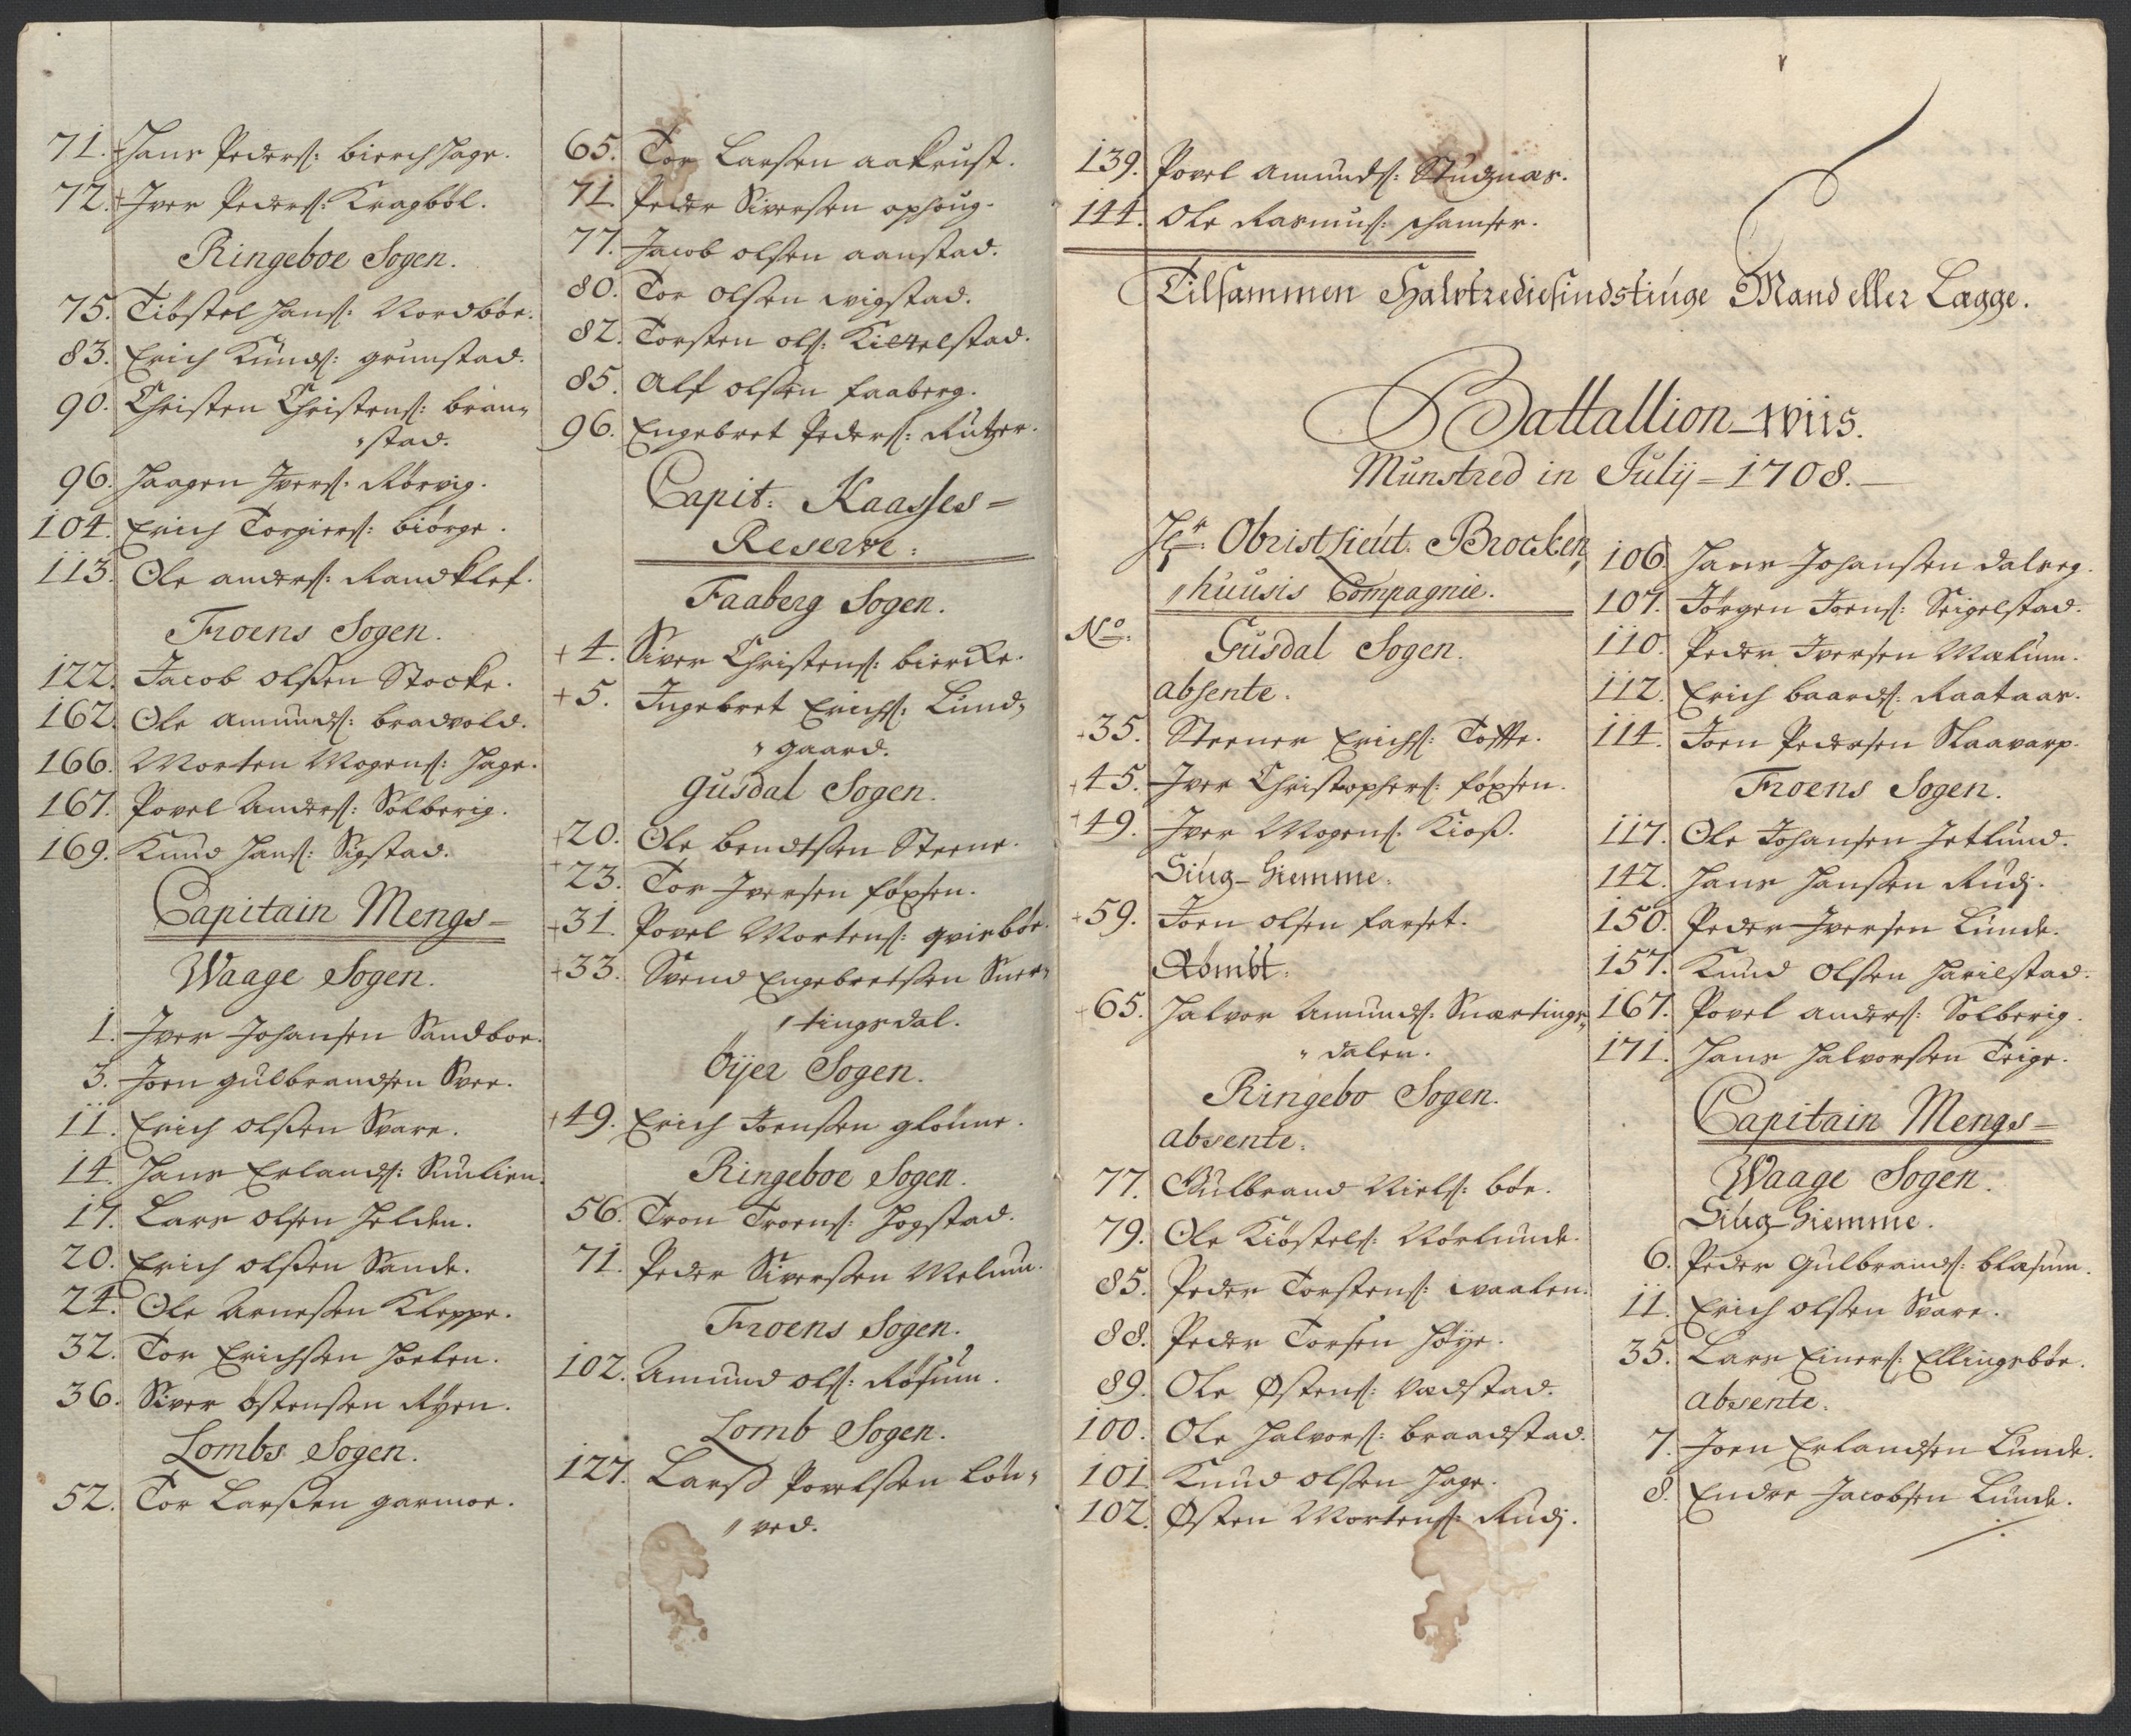 71. Hans Peders: bierchhage.
72. Iver Peders: Kragböl.
Ringeboe Sogen.
75. Tiöstel Hans: Nordböe.
83. Erich Knuds: grunstad.
90. Christen Christens: brän„
„stad.
96. Haagen Ivers: Rörvig.
104. Erich Torgiers: biörge.
113. Ole anders: Randklef.
Froens Sogen.
122. Jacob olsßen Stocke.
162. Ole amunds: bradvold.
166. Morten Mogens: Hage.
167. Povel Anders: Solberig.
169. Knud Hans: Sigstad.
Capitain Mengs=
Waage Sogen.
1. Iver Johansen Sandboe.
3. Joen gulbrandsen Svee.
11. Erich olsßen Svare.
14. Hans Erlands: Snulien.
17. Lars olsen Helden.
20. Erich olsßen Sande.
24. Ole Arneßen Kleppe.
32. Tor Erichßen Hoelen.
36. Siver östensßen Ryen.
Lombs Sogen.
52. Tor Larßen garmoe.
65. Tor Larsßen aakrust.
71. Peder Siversßen ophoug.
77. Jacob olsßen aanstad.
80. Tor olsßen wigstad.
82. Torsten ols: Kielelstad.
85. Alf olsßen faaberg.
96. Engebret Peders: Rutzer.
Capit: Kaasses=
Reserve:
Faaberg Sogen.
+ 4. Siver Christens: biercke.
+ 5. Ingebret Erichs: Lund„
„gaard.
Gusdal Sogen.
+20. Ole bendtsßen Steene.
+23. Tor Iversen föxsen.
+31. Povel Mortens: qvisböe.
+33. Svend Engebretsßen Sner„
„tingsdal.
Öyer Sogen.
+49. Erich Joensßen glömme.
Ringeboe Sogen.
56. Tron Troens: Hogstad.
71. Peder Siversßen Melum.
Froens Sogen.
102. Amund ols: Röfum.
Lomb Sogen.
127. Larß Povelsßen Lön„
„ved.
139. Povel Amunds: Stugnæs.
144. Ole Rasmus: shamser.
Tilsammen Halvtrediesindstiuge Mand eller Lægge.
Battallion=wiis.
Munstred in Julij=1708.
Hr: Obristlieut: Brocken„
„huusis Compagnie.
No:
Gusdal Sogen.
absente.
+35. Steener Erichs: Tofte.
+45. Iver Christophers: föxsen.
+49. Iver Mogens: Kioß.
Siug-hiemme.
+59. Joen olsen farset.
Römbt.
+65. Halvor Amunds: Snærtings„
„dalen.
Ringebo Sogen.
absente.
77. Gulbrand Niels: böe.
79. Ole Kiöstels: Nörlunde.
85. Peder Torstens: waalen.
88. Peder Torsen höye.
89. Ole Østens: Vadstad.
100. Ole Halvors: braadstad.
101. Knud olsßen Hage.
102. Østen Mortens: Rudj.
106. Hans Johansßen dalseg.
107. Jörgen Joens: Seigelstad.
110. Peder Iversen Mælum.
112. Erich baards: Raataas.
114. Joen Pedersen Slaavarp.
Froens Sogen.
117. Ole Johansen Jetlund.
142. Hans Hanßen Rudj.
150. Peder Iversen Lunde.
157. Knud olsßen Harilstad.
167. Povel anders: Solberig.
171. Hans Halvorsßen Teige.
Capitain Mengs=
Waage Sogen.
Siug-hiemme.
6. Peder Gulbrands: blasum.
11. Erich olsßen Svare.
35. Lars Einers: Ellingsböe.
absente.
7. Joen Erlandsen Lunde.
8. Endre Jacobsen Lunde.